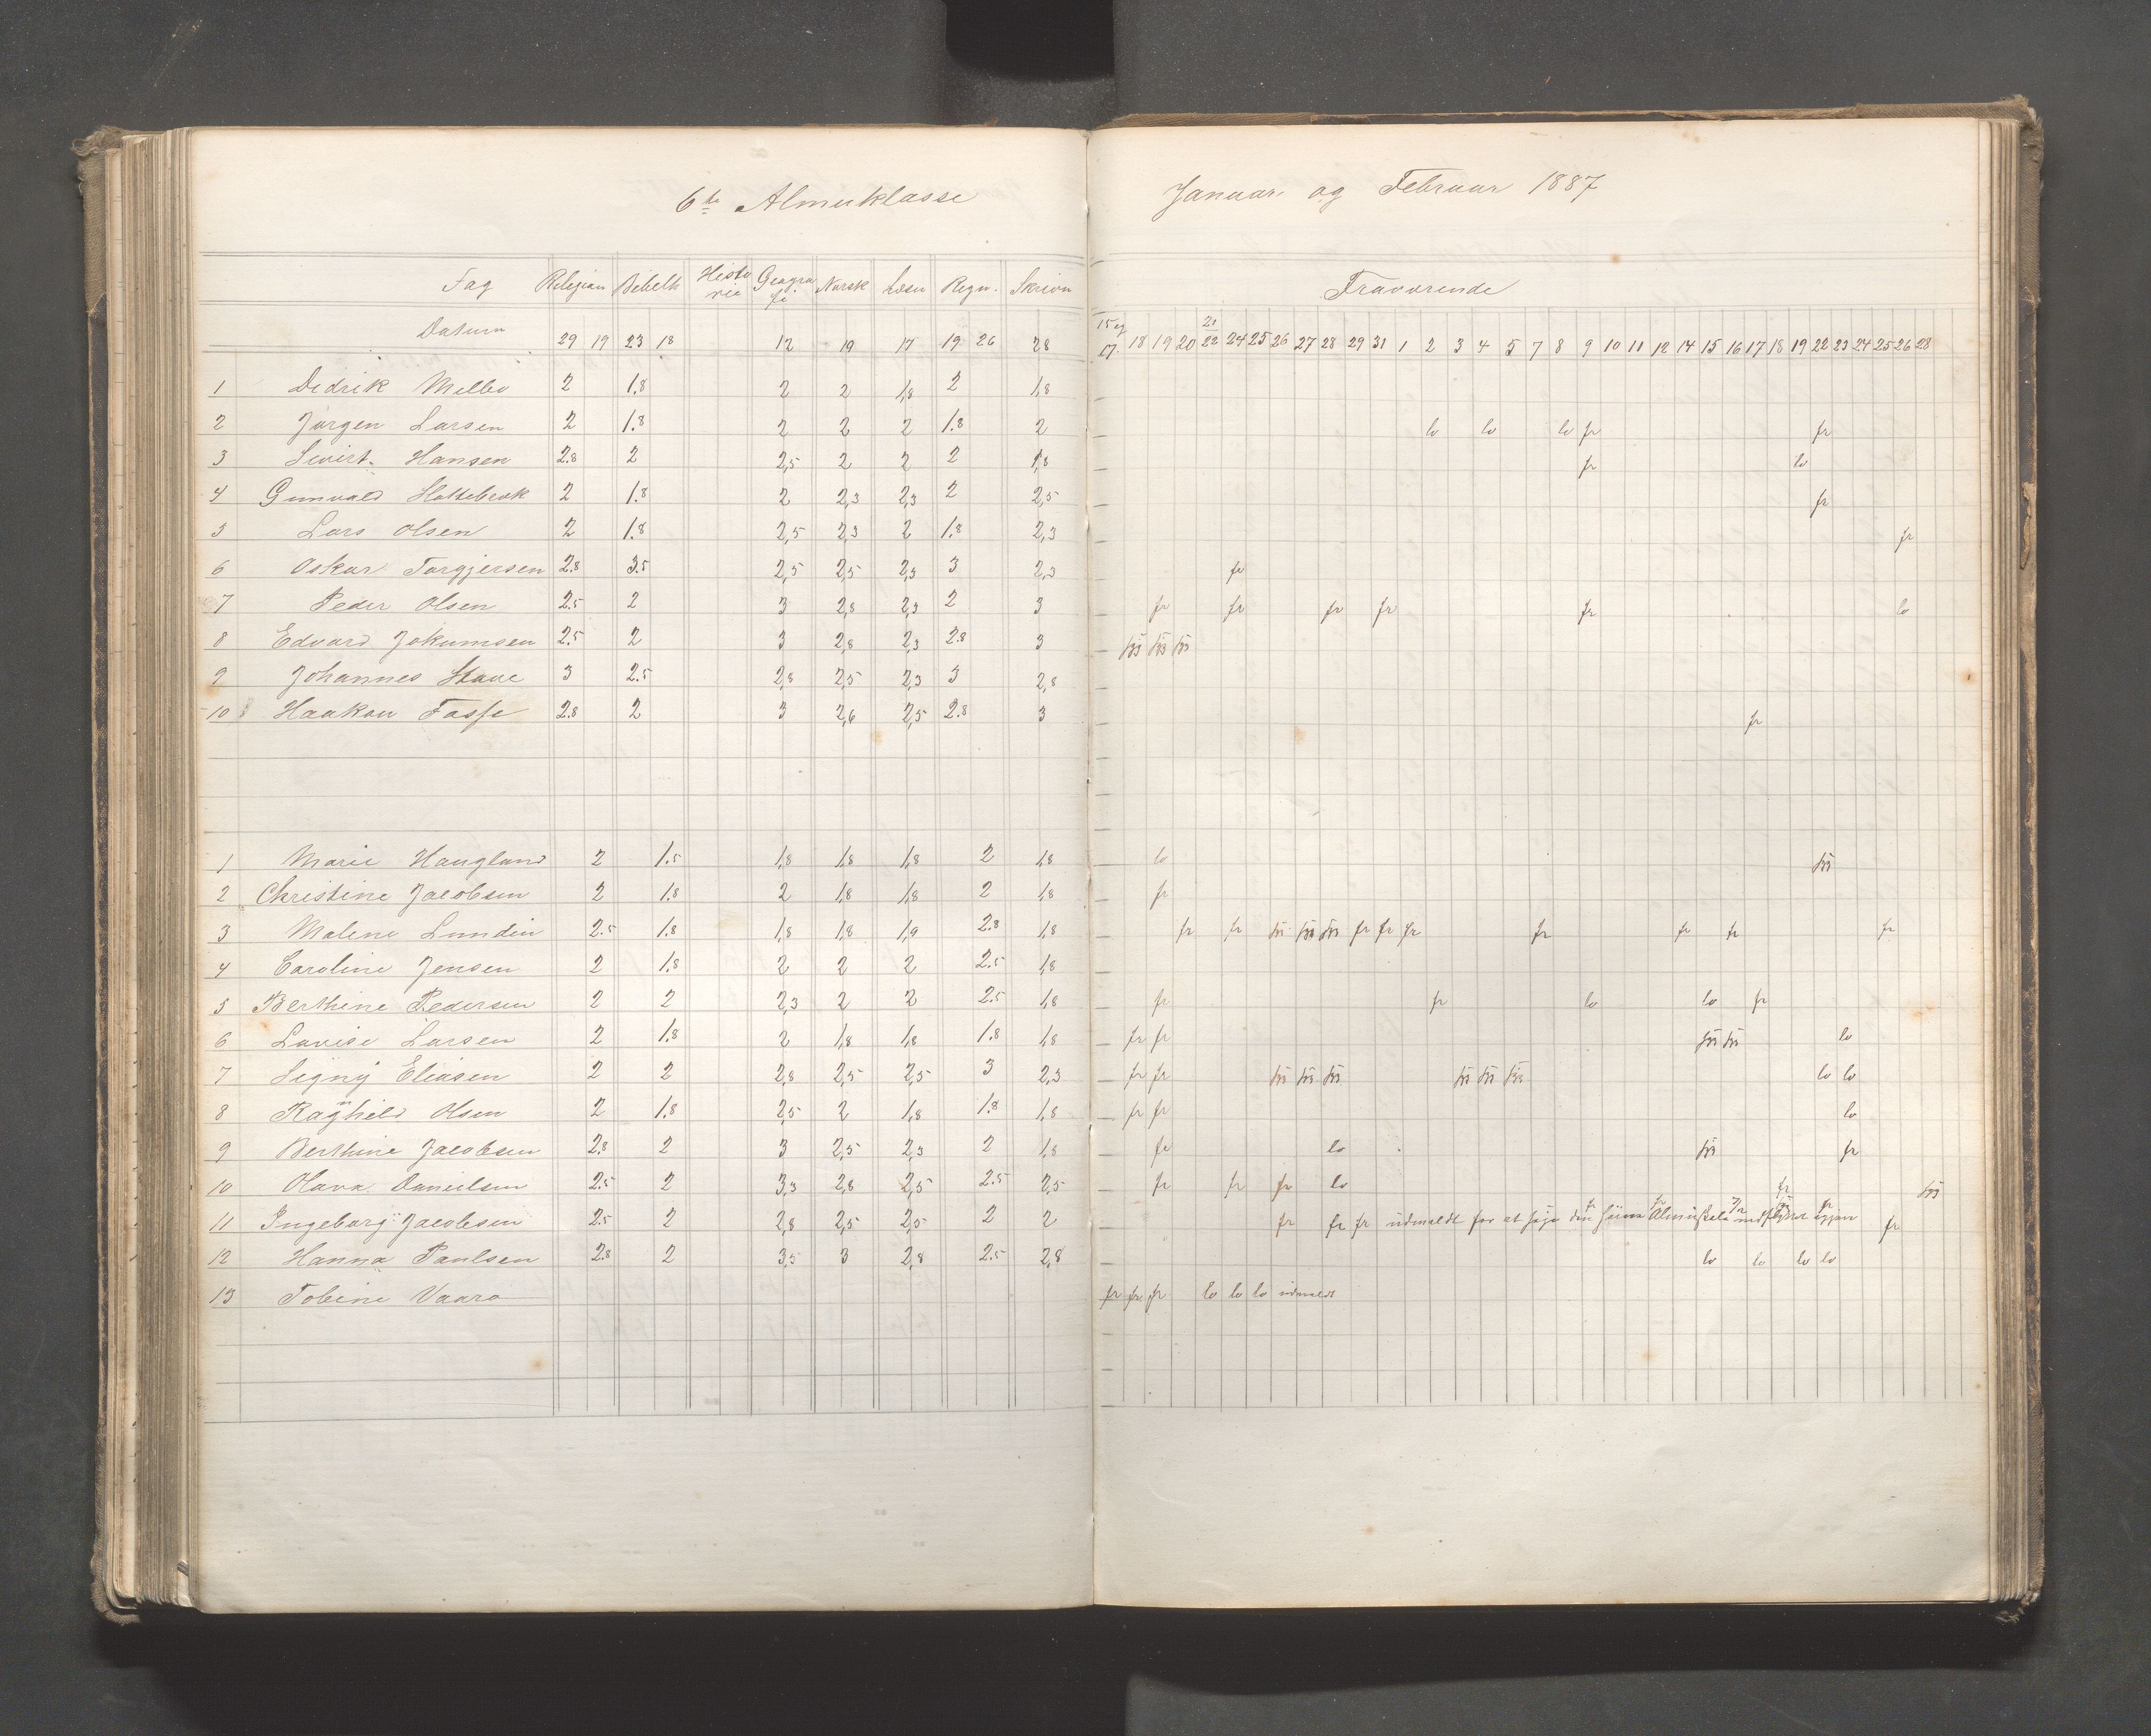 6te Almueklasse
Januar og Februar 1887
Fag Religion Bibelh Historie Geografi Norsk Læsn Regn. Skrivn
Fraværende
Datum 29 19 23 18 12 19 17 19 26 28
15 og 17. 18 19 20 21/22 24 25 26 27 28 29 31 1 2 3 4 5 7 8 9 10 11 12 14 15 16 17 18 19 22 23 24 25 26 28
1 Didrik Melbo 2 1.8 2 2 1,8 2 1,8
2 Jørgen Larsen 2 1.8 2 2 2 1.8 2 lo lo lo fr fr
3 Sivert Hansen 2.8 2 2,5 2 2 2 1,8 fr lo
4 Gunvald Hottebrok 2 1.8 2 2,3 2,3 2 2,5 fr
5 Lars Olsen 2 1.8 2,5 2,3 2 1.8 2,3 fr
6 Oskar Torgjersen 2.8 3.5 2,5 2,5 2,3 3 2,3 fr
7 Peder Olsen 2.5 2 3 2,8 2,3 2 3 fr fr fr fr fr lo
8 Edvard Jokumsen 2.5 2 3 2,8 2,3 2.8 3
9 Johannes Stave 3 2.5 2,8 2,5 2,3 3 2,8
10 Haakon Fasse 2.8 2 3 2,6 2,5 2.8 3 fr
1 Marie Haugland 2 1.5 1,8 1,8 1,8 2 1,8 lo
2 Christine Jacobsen 2 1.8 2 1,8 1,8 2 1,8 fr
3 Malene Lundin 2.5 1.8 1,8 1,8 1,9 2.8 1,8 fr fr fr fr fr fr fr fr fr
4 Caroline Jensen 2 1.8 2 2 2 2.5 1,8
5 Berthine Pedersen 2 2 2,3 2 2 2.5 1,8 fr fr lo lo fr
6 Lovise Larsen 2 1.8 2 1,8 1,8 1.8 1,8 fr fr lo
7 Signy Eliasen 2 2 2,8 2,5 2,5 3 2,3 fr fr lo lo
8 Ragnhild Olsen 2 1.8 2,5 2 1,8 1.8 1,8 fr fr lo
9 Berthine Jacobsen 2.8 2 3 2,5 2,3 2 1,8 fr lo fr
10 Olava Danielsen 2.5 2 3,3 2,8 2,5 2.5 2,5 fr fr fr lo
11 Ingeborg Jacobsen 2.5 2 2,8 2,5 2,5 2 2 fr fr fr udmeldt for at søge den igjen fr
12 Hanna Paulsen 2.8 2 3,5 3 2,8 2.5 2,8 lo lo lo lo
13 Tobine Vaaro fr fr fr lo lo lo udmeldt